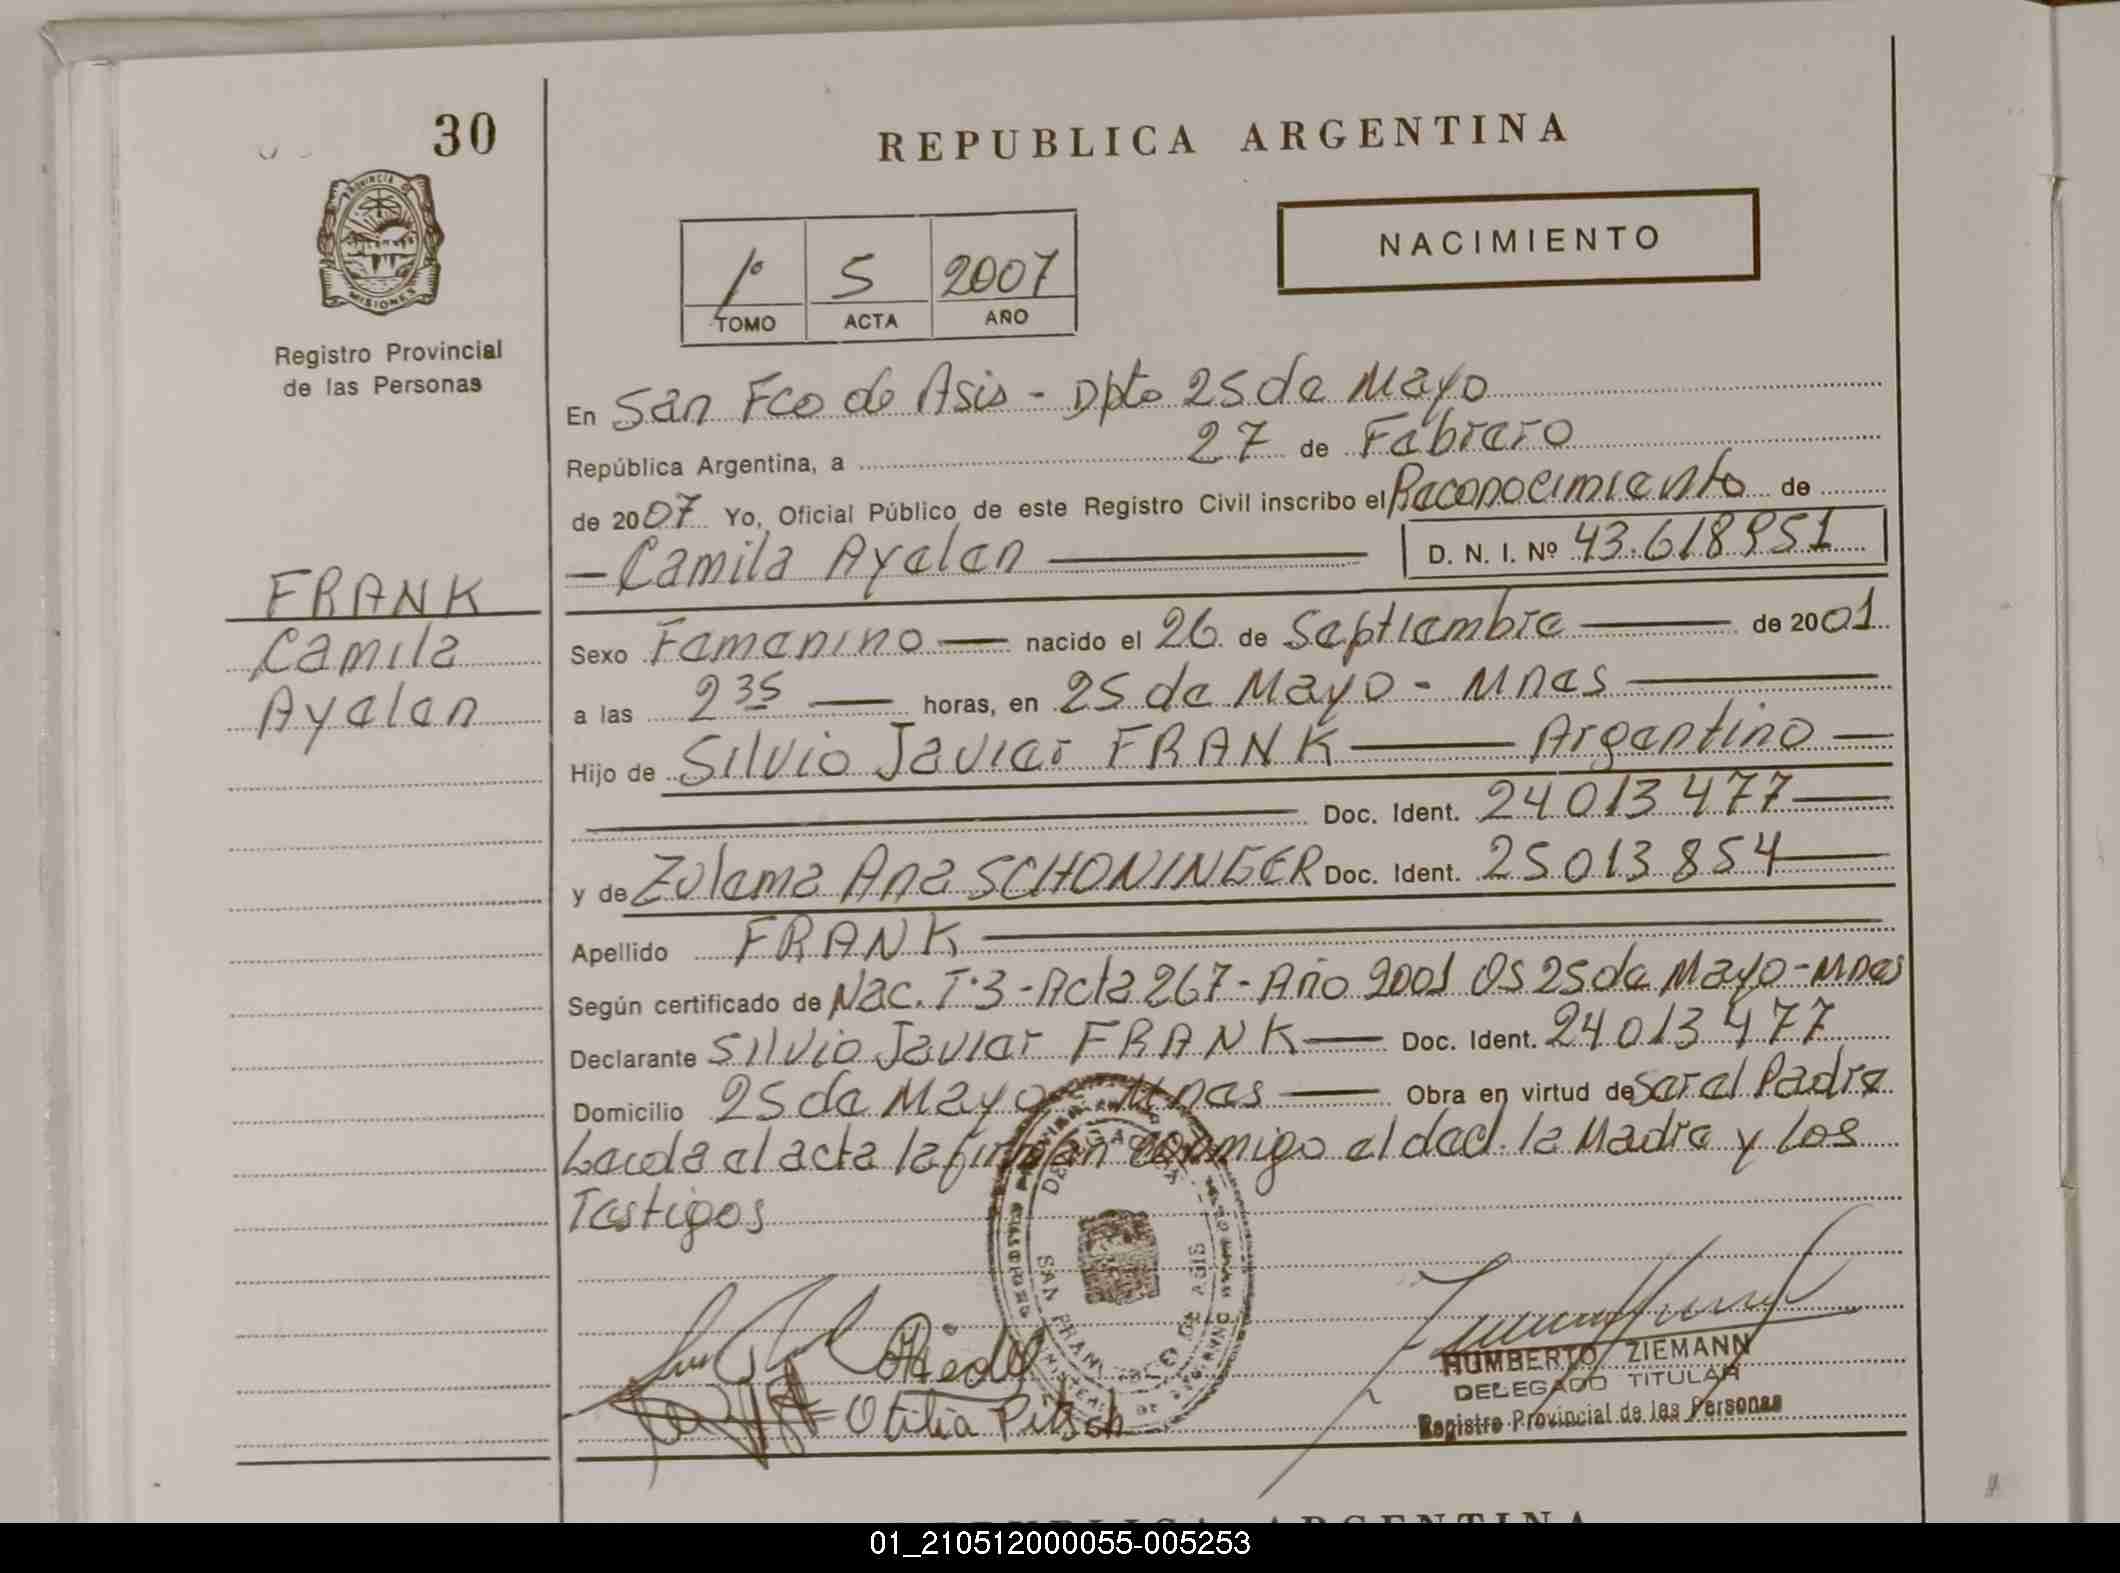 30
REPUBLICA ARGENTINA
PROVINCIA DE
MISIONES
NACIMIENTO
1º 5 2007
TOMO ACTA AÑO
Registro Provincial
de las Personas
En San Fco de Asis - Dpto 25 de Mayo
República Argentina, a 27 de Febrero
de 2007 Yo, Oficial Público de este Registro Civil inscribo el Reconocimiento de
— Camila Ayelen — D. N. I. Nº 43.618951
FRANK
Camila
Ayelen
Sexo Femenino — nacido el 26 de Septiembre — de 2001
a las 2 35 — horas, en 25 de Mayo - Mnes —
Hijo de Silvio Javier FRANK — Argentino —
Doc. Ident. 24013477 —
y de Zulema Ana SCHONINGER Doc. Ident. 25013854 —
Apellido FRANK —
Según certificado de Nac. Tº3 - Acta 267 - Año 2001 DS 25 de Mayo - Mnes
Declarante Silvio Javier FRANK — Doc. Ident. 24013477
Domicilio 25 de Mayo - Mnes — Obra en virtud de Ser el Padre
Leida el acta la firman conmigo el decl. la Madre y los
Testigos
SAN FRAN DE ASIS
Otilia Pitsch
HUMBERTO ZIEMANN
DELEGADO TITULAR
Registro Provincial de las Personas
REPUBLICA ARGENTINA
01_210512000055-005253